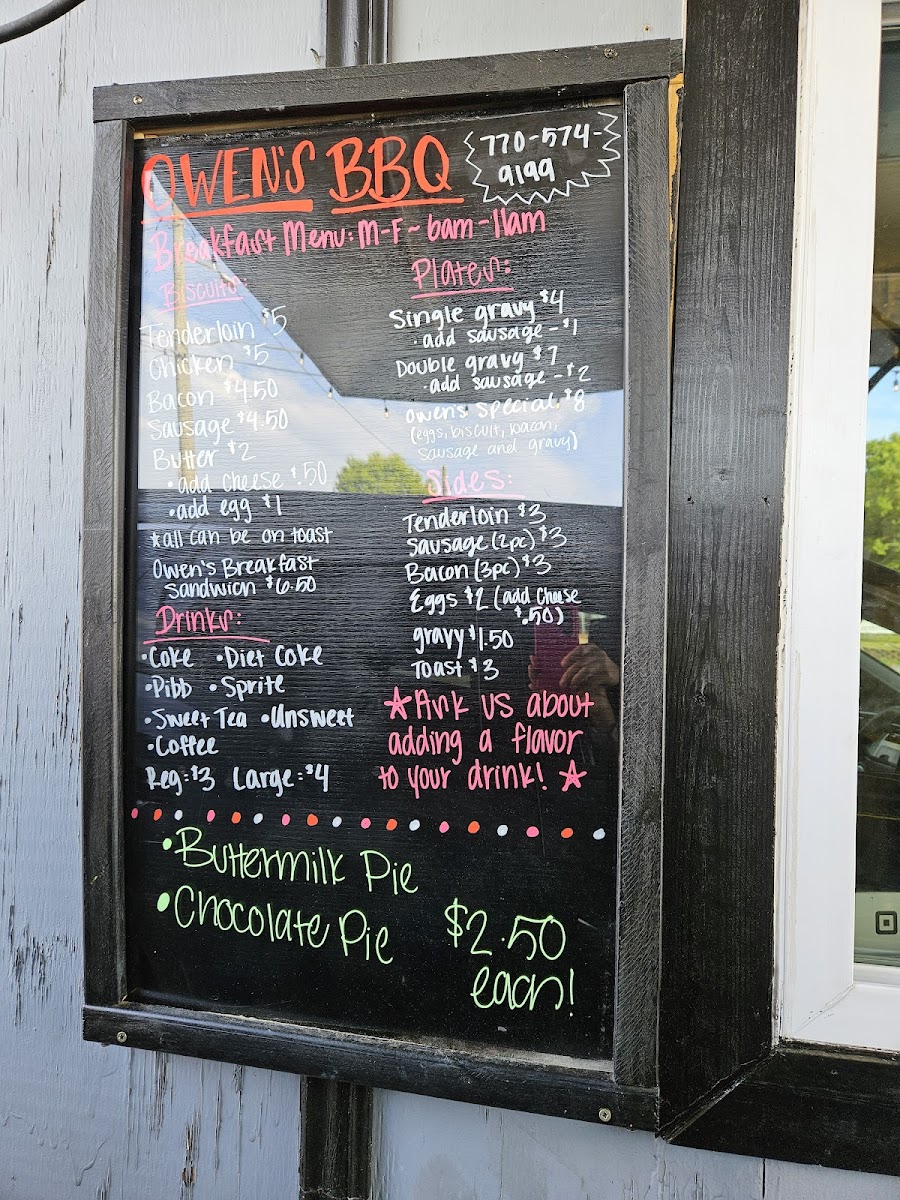 OWEN'S BBQ
770-574-
9199
Breakfast Menu: M-F ~ 6am-11am
Biscuits:
Tenderloin $5
Chicken $5
Bacon $4.50
Sausage $4.50
Butter $2
• add cheese $.50
• add egg $1
*all can be on toast
Owen's Breakfast
Sandwich $6.50
Drinks:
• Coke • Diet Coke
• Pibb • Sprite
• Sweet Tea • Unsweet
• Coffee
Reg: $3 Large: $4
Plates:
Single gravy $4
• add sausage - $1
Double gravy $7
• add sausage - $2
Owen's Special $8
(eggs, biscuit, bacon,
sausage and gravy)
Sides:
Tenderloin $3
Sausage (2pc) $3
Bacon (3pc) $3
Eggs $2 (add cheese
$.50)
gravy $1.50
Toast $3
*Ask us about
adding a flavor
to your drink! *
• Buttermilk Pie
• Chocolate Pie
$2.50
each!